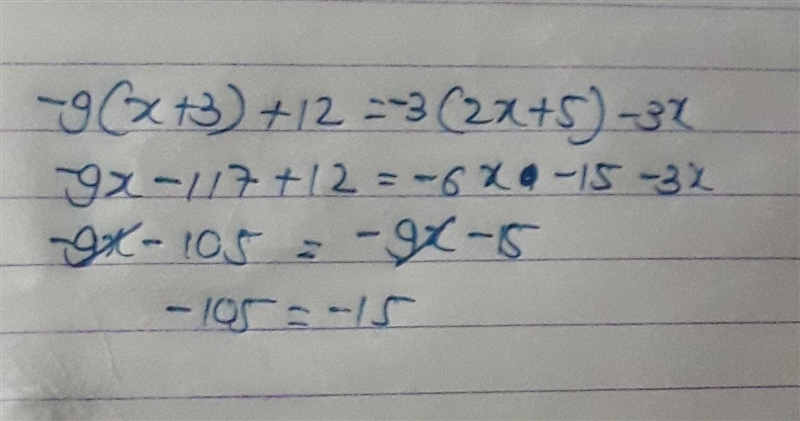 -9(x+3)+12=-3(2x+5)-3x
-9x-117+12=-6x-15-3x
-9x-105=-9x-15
-105=-15